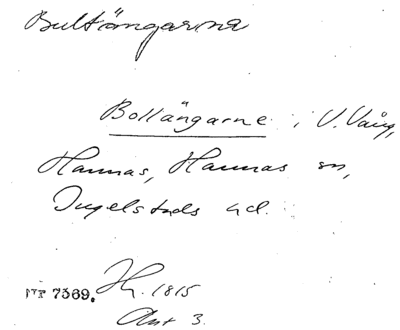 Bultängarna
Bollängarne i V. Vång,
Hannas, Hannas sn,
Ingelstads hd.
7369. Jh. 1815
Akt 3.